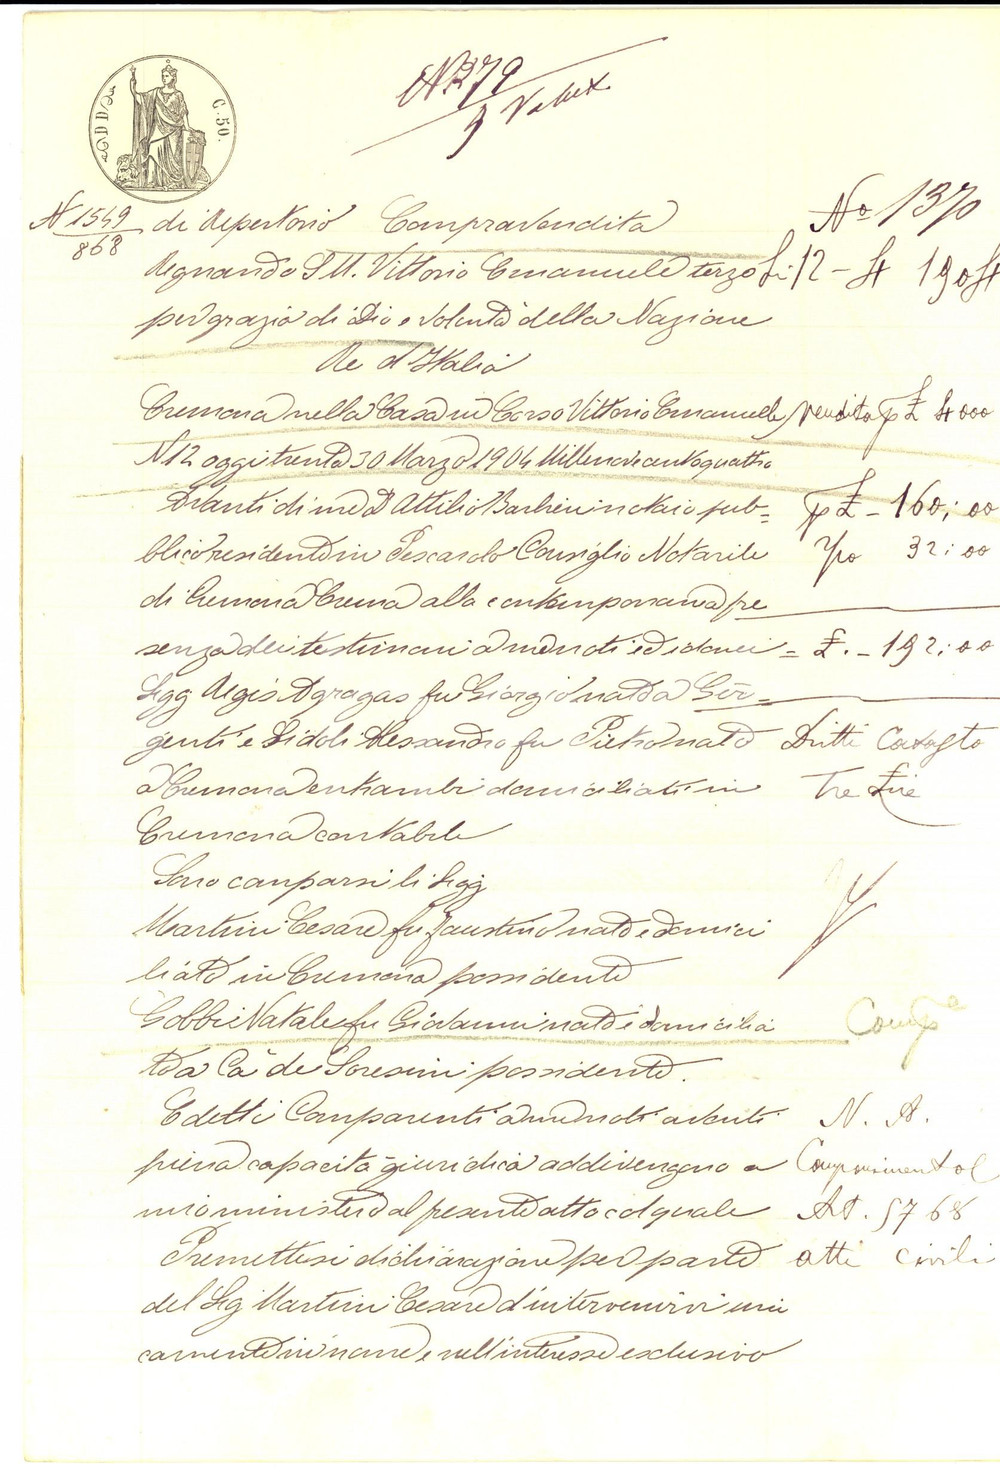 C. 50.
N 1549
868
di Repertorio Compravendita
No 1370
Regnando S. M. Vittorio Emanuele terzo
Li 12 - 4 1904
per grazia di Dio e volontà della Nazione
Re d'Italia
Cremona nella Casa in Corso Vittorio Emanuele
vendita p £ 4000
N 12 oggi trenta 30 Marzo 1904 Millenovecentoquattro
Avanti di me D Attilio Barbieri notaio pub=
p £ - 160; 00
blico residente in Pescarolo Consiglio Notarile
32: 00
di Cremona Crema alla contemporanea pre
senza dei testimoni a me noti ed idonei
= £. - 192: 00
Sigg Regis Agragas fu Giorgio nato a Gir=
genti e Didoli Alessandro fu Pietro nato
Dritti Catasto
a Cremona entrambi domiciliati in
Tre Lire
Cremona contabile
Sono comparsi li Sigg
Martini Cesare fu Faustino nato e domici
liato in Cremona possidente
Gobbi Natale fu Giovanni nato e domicilia
Comp a
to a Ca' de Soresini possidente.
E detti Comparenti a me noti aventi
N. A.
piena capacità giuridica addivengono a
mio ministero al presente atto col quale
Art. 5768
Premettesi dichiarazione per parte
atti civili
del Sig Martini Cesare d'intervenirvi uni
camente in nome e nell'interesse esclusivo